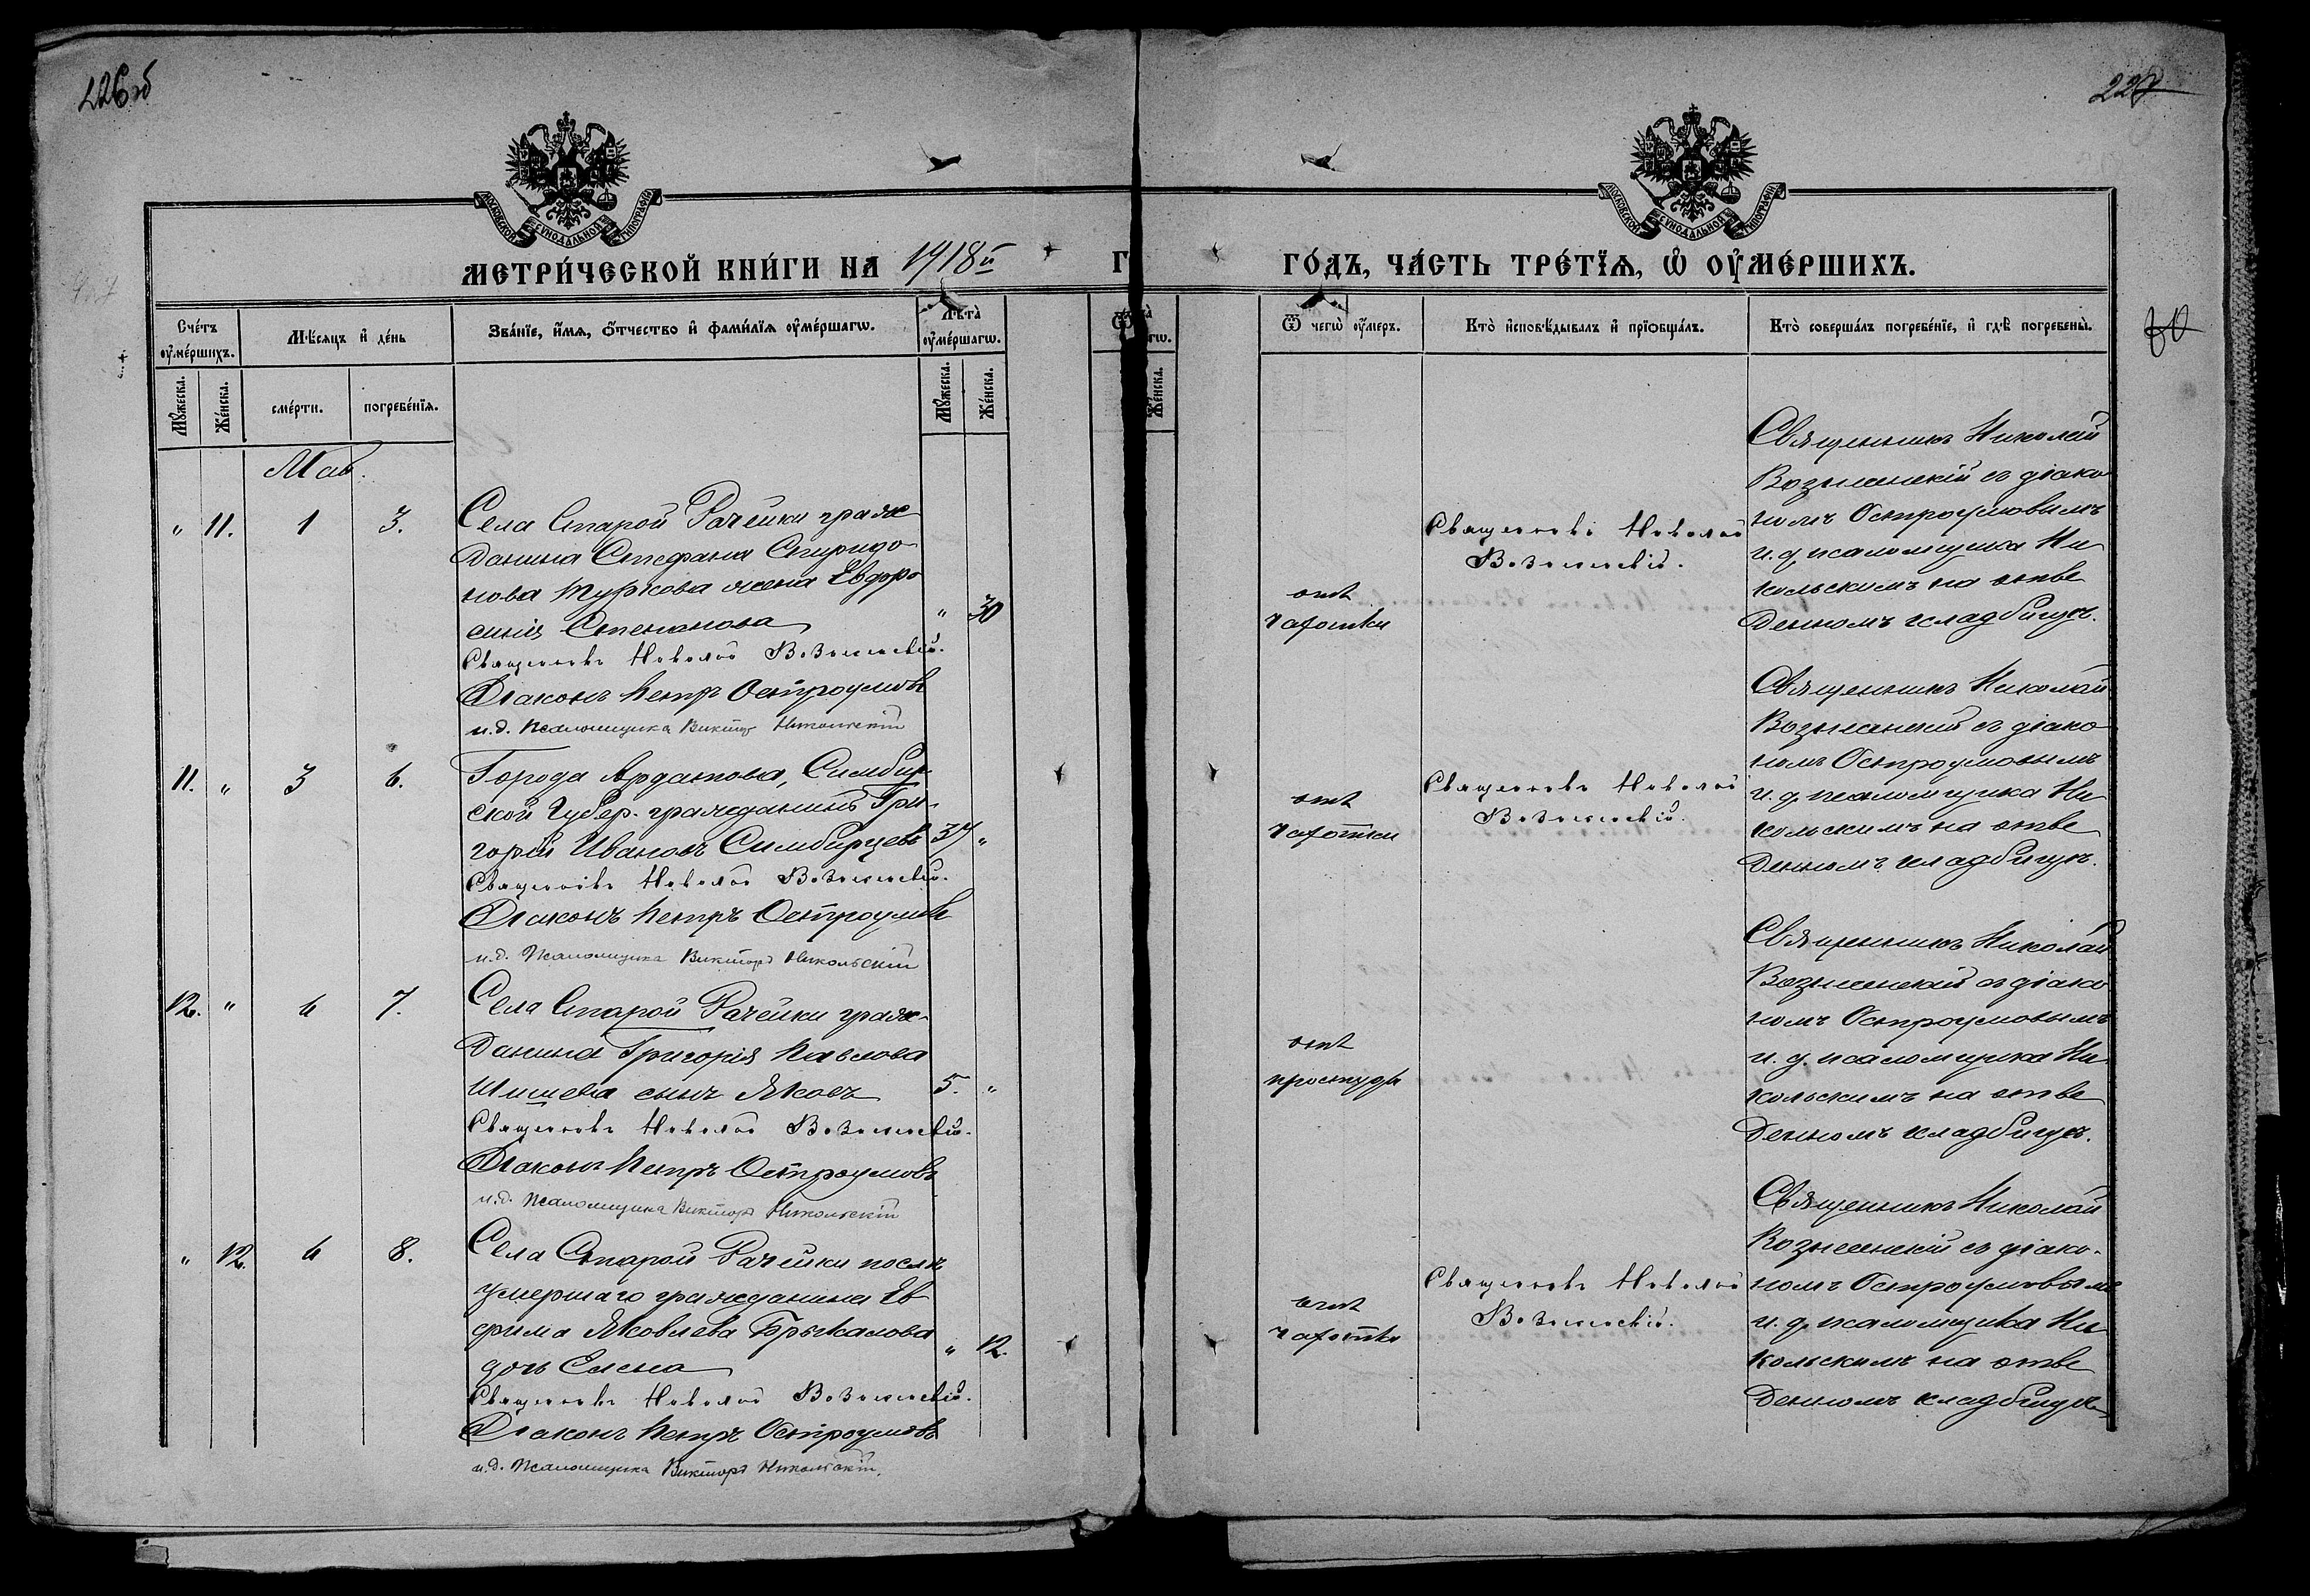 226об
227
80
МОСКОВСКОЙ СѴНОДАЛЬНОЙ ТИПОГРАФІИ
МОСКОВСКОЙ СѴНОДАЛЬНОЙ ТИПОГРАФІИ
МЕТРИ́ЧЕСКОЙ КНИ́ГИ НА 1918й Г
ГО́ДЪ, ЧА́СТЬ ТРЕ́ТІѦ, Ѡ҆ ОУ҆МЕ́РШИХЪ.
Сче́тъ оу҆ме́ршихъ.
Мѣ́сяцъ и҆ де́нь
Зва́нїе, и҆́мѧ, ѻ҆́тчество и҆ фами́лїѧ оу҆ме́ршагѡ.
Лѣ́та̀ оу҆ме́ршагѡ.
Му́жеска.
Же́нска.
сме́рти.
погребе́нїѧ.
Му́жеска.
Же́нска.
Же́нска.
Ѿ чегѡ̀ оу҆́меръ.
Кто̀ и҆сповѣ́дывалъ и҆ прїѻбща́лъ.
Кто̀ соверша́лъ погребе́нїе, и҆ гдѣ̀ погребены̀.
Май.
" 11. 1 3.
Села Старой Рачейки граж
данина Стефана Спиридо
нова Туркова жена Евфро
синія Степанова " 30
Священникъ Николай Вознесенскій.
Діаконъ Петръ Остроумовъ
и.д. Псаломщика Викторъ Никольскій
отъ
чахотки
Священникъ Николай
Вознесенскій.
Священникъ Николай
Вознесенскій съ діако
номъ Остроумовымъ
и. д. псаломщика Ни
кольскимъ на отве
денномъ кладбищѣ.
11. " 3 6.
Города Ардатова, Симбир
ской Губер. гражданинъ Гри-
горій Ивановъ Симбирцевъ 37 "
Священникъ Николай Вознесенскій.
Діаконъ Петръ Остроумовъ
и.д. Псаломщика Викторъ Никольскій
отъ
чахотки
Священникъ Николай
Вознесенскій.
Священникъ Николай
Вознесенскій съ діако
номъ Остроумовымъ
и. д. псаломщика Ни
кольскимъ на отве
денномъ кладбищѣ.
12. " 6 7.
Села Старой Рачейки граж-
данина Григорія Павлова
Шишева сынъ Яковъ 5. "
Священникъ Николай Вознесенскій.
Діаконъ Петръ Остроумовъ
и.д. Псаломщика Викторъ Никольскій
отъ
простуды
Священникъ Николай
Вознесенскій съ діако
номъ Остроумовымъ
и. д. псаломщика Ни
кольскимъ на отве
денномъ кладбищѣ.
" 12. 6 8.
Села Старой Рачейки послѣ
умершаго гражданина Ев
фима Яковлева Брыкалова
дочь Елена " 12.
Священникъ Николай Вознесенскій.
Діаконъ Петръ Остроумовъ
и.д. Псаломщика Викторъ Никольскій.
отъ
чахотки
Священникъ Николай
Вознесенскій.
Священникъ Николай
Вознесенскій съ діако-
номъ Остроумовымъ
и. д. псаломщика Ни
кольскимъ на отве
денномъ кладбищѣ